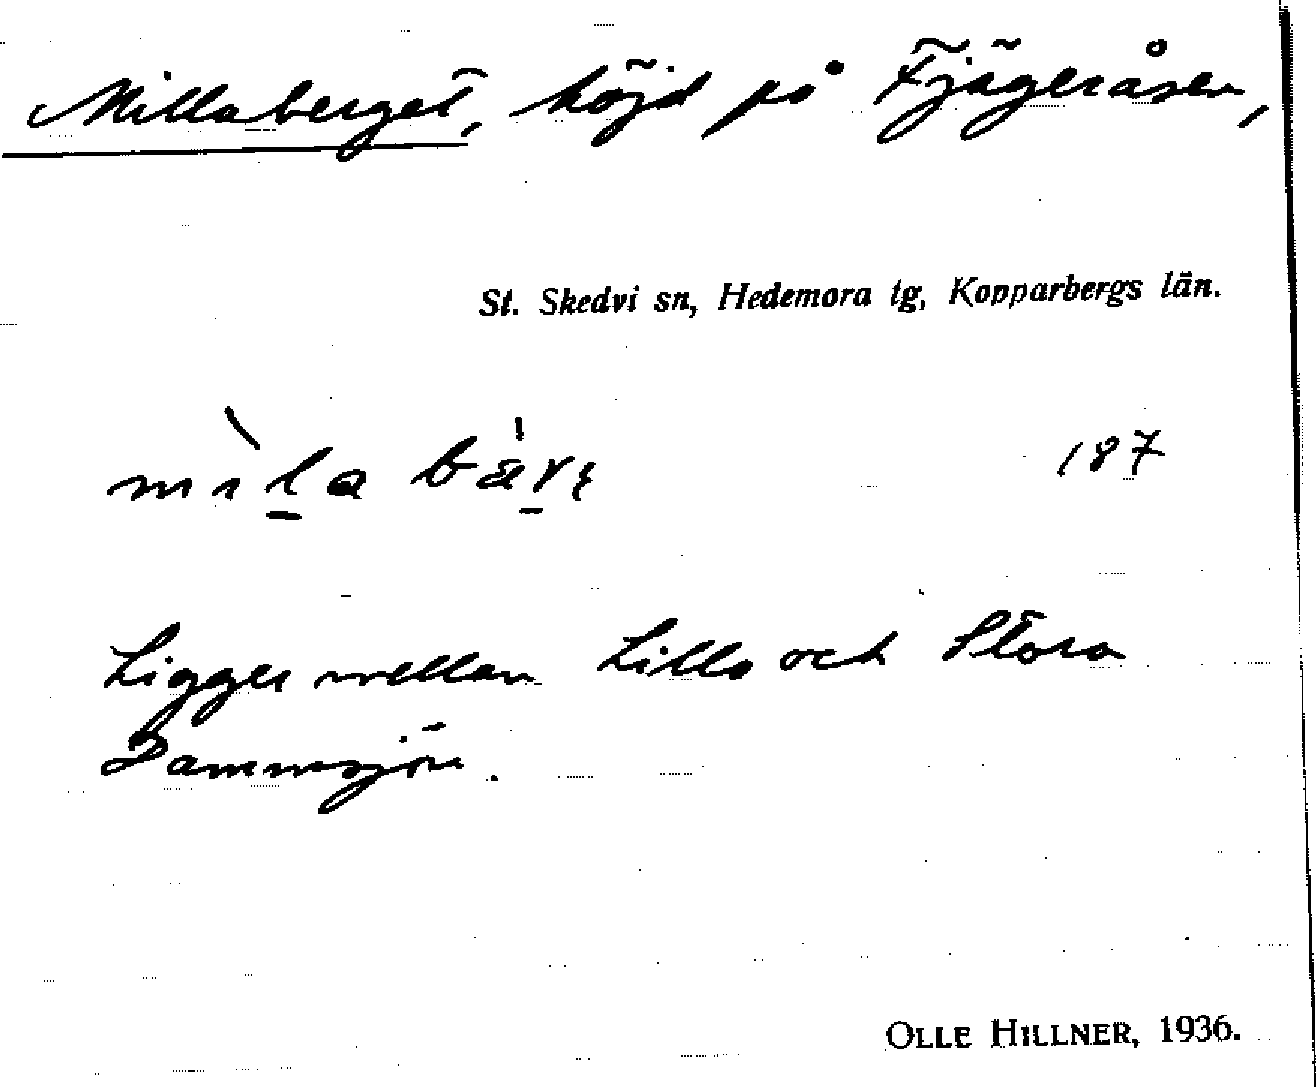 Millaberget, höjd på Fjägeråsen,
St. Skedvi sn, Hedemora tg, Kopparbergs län.
mìla bärɛ 187
Ligger mellan Lilla och Stora
Dammsjön.
OLLE HILLNER, 1936.